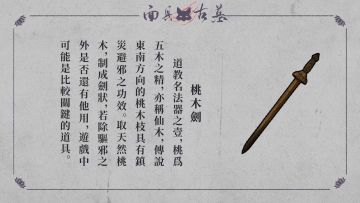 面具古墓
桃木劍
道教名法器之壹，桃爲
五木之精，亦稱仙木，傳說
東南方向的桃木枝具有鎮
災避邪之功效。取天然桃
木，制成劍狀，若除驅邪之
外是否還有他用，遊戲中
可能是比較關鍵的道具。